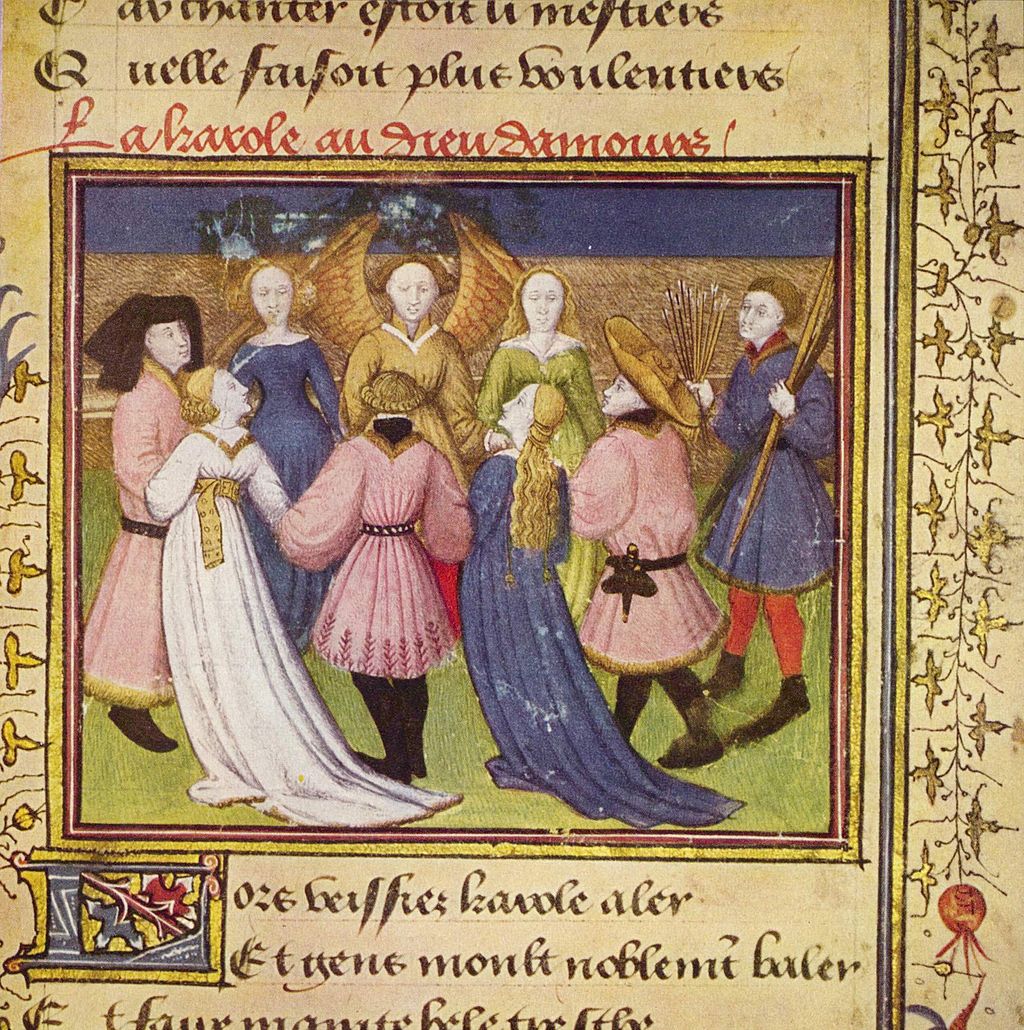 C au chanter estoit li mestiers
Quelle faisoit plus voulentiers
La karole au dieu damours
Lors veissiez karole aler
Et gens moult noblemt baler
Et faire mainte bele tresche